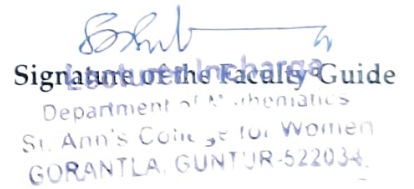 Signature of the Faculty Guide
Lecturer Incharge
Department of Mathematics
St. Ann's College for Women
GORANTLA, GUNTUR-522034.